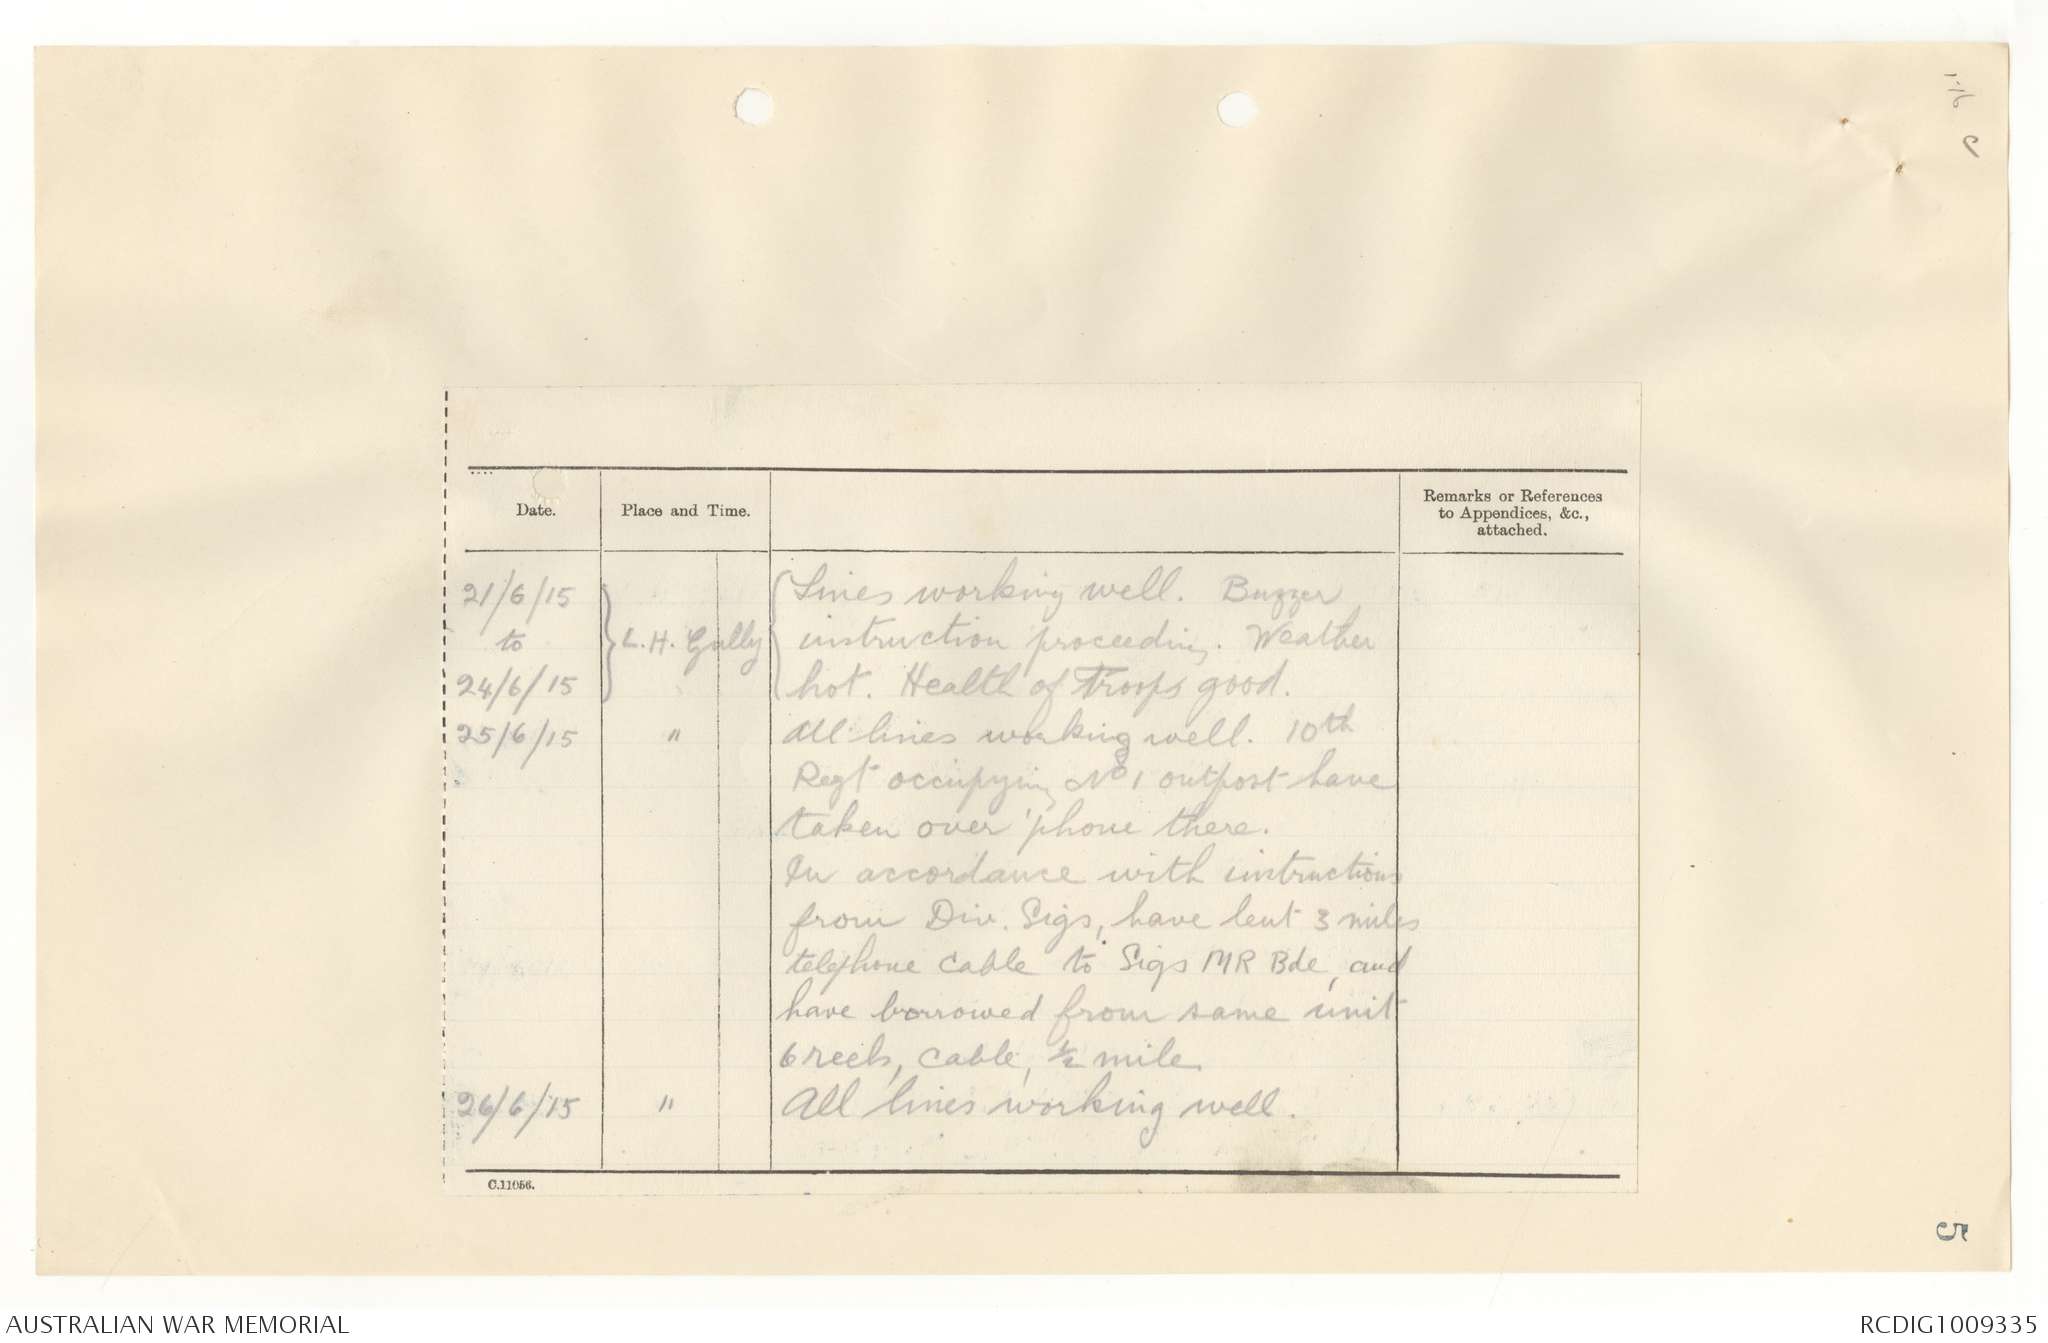 Date. Place and Time. Remarks or References
to Appendices, &c.,
attached.
21/6/15 Lines working well. Buzzer
to L.H. Gully instruction proceeding. Weather
24/6/15 hot. Health of Troops good.
25/6/15 " All lines working well. 10th
Regt occupying No 1 outpost have
taken over 'phone there.
In accordance with instructions
from Div. Sigs, have lent 3 miles
telephone cable to Sigs MR Bde, and
have borrowed from same unit
6 reels, cable, ½ mile.
26/6/15 " All lines working well.
C.11056.
5
AUSTRALIAN WAR MEMORIAL
RCDIG1009335